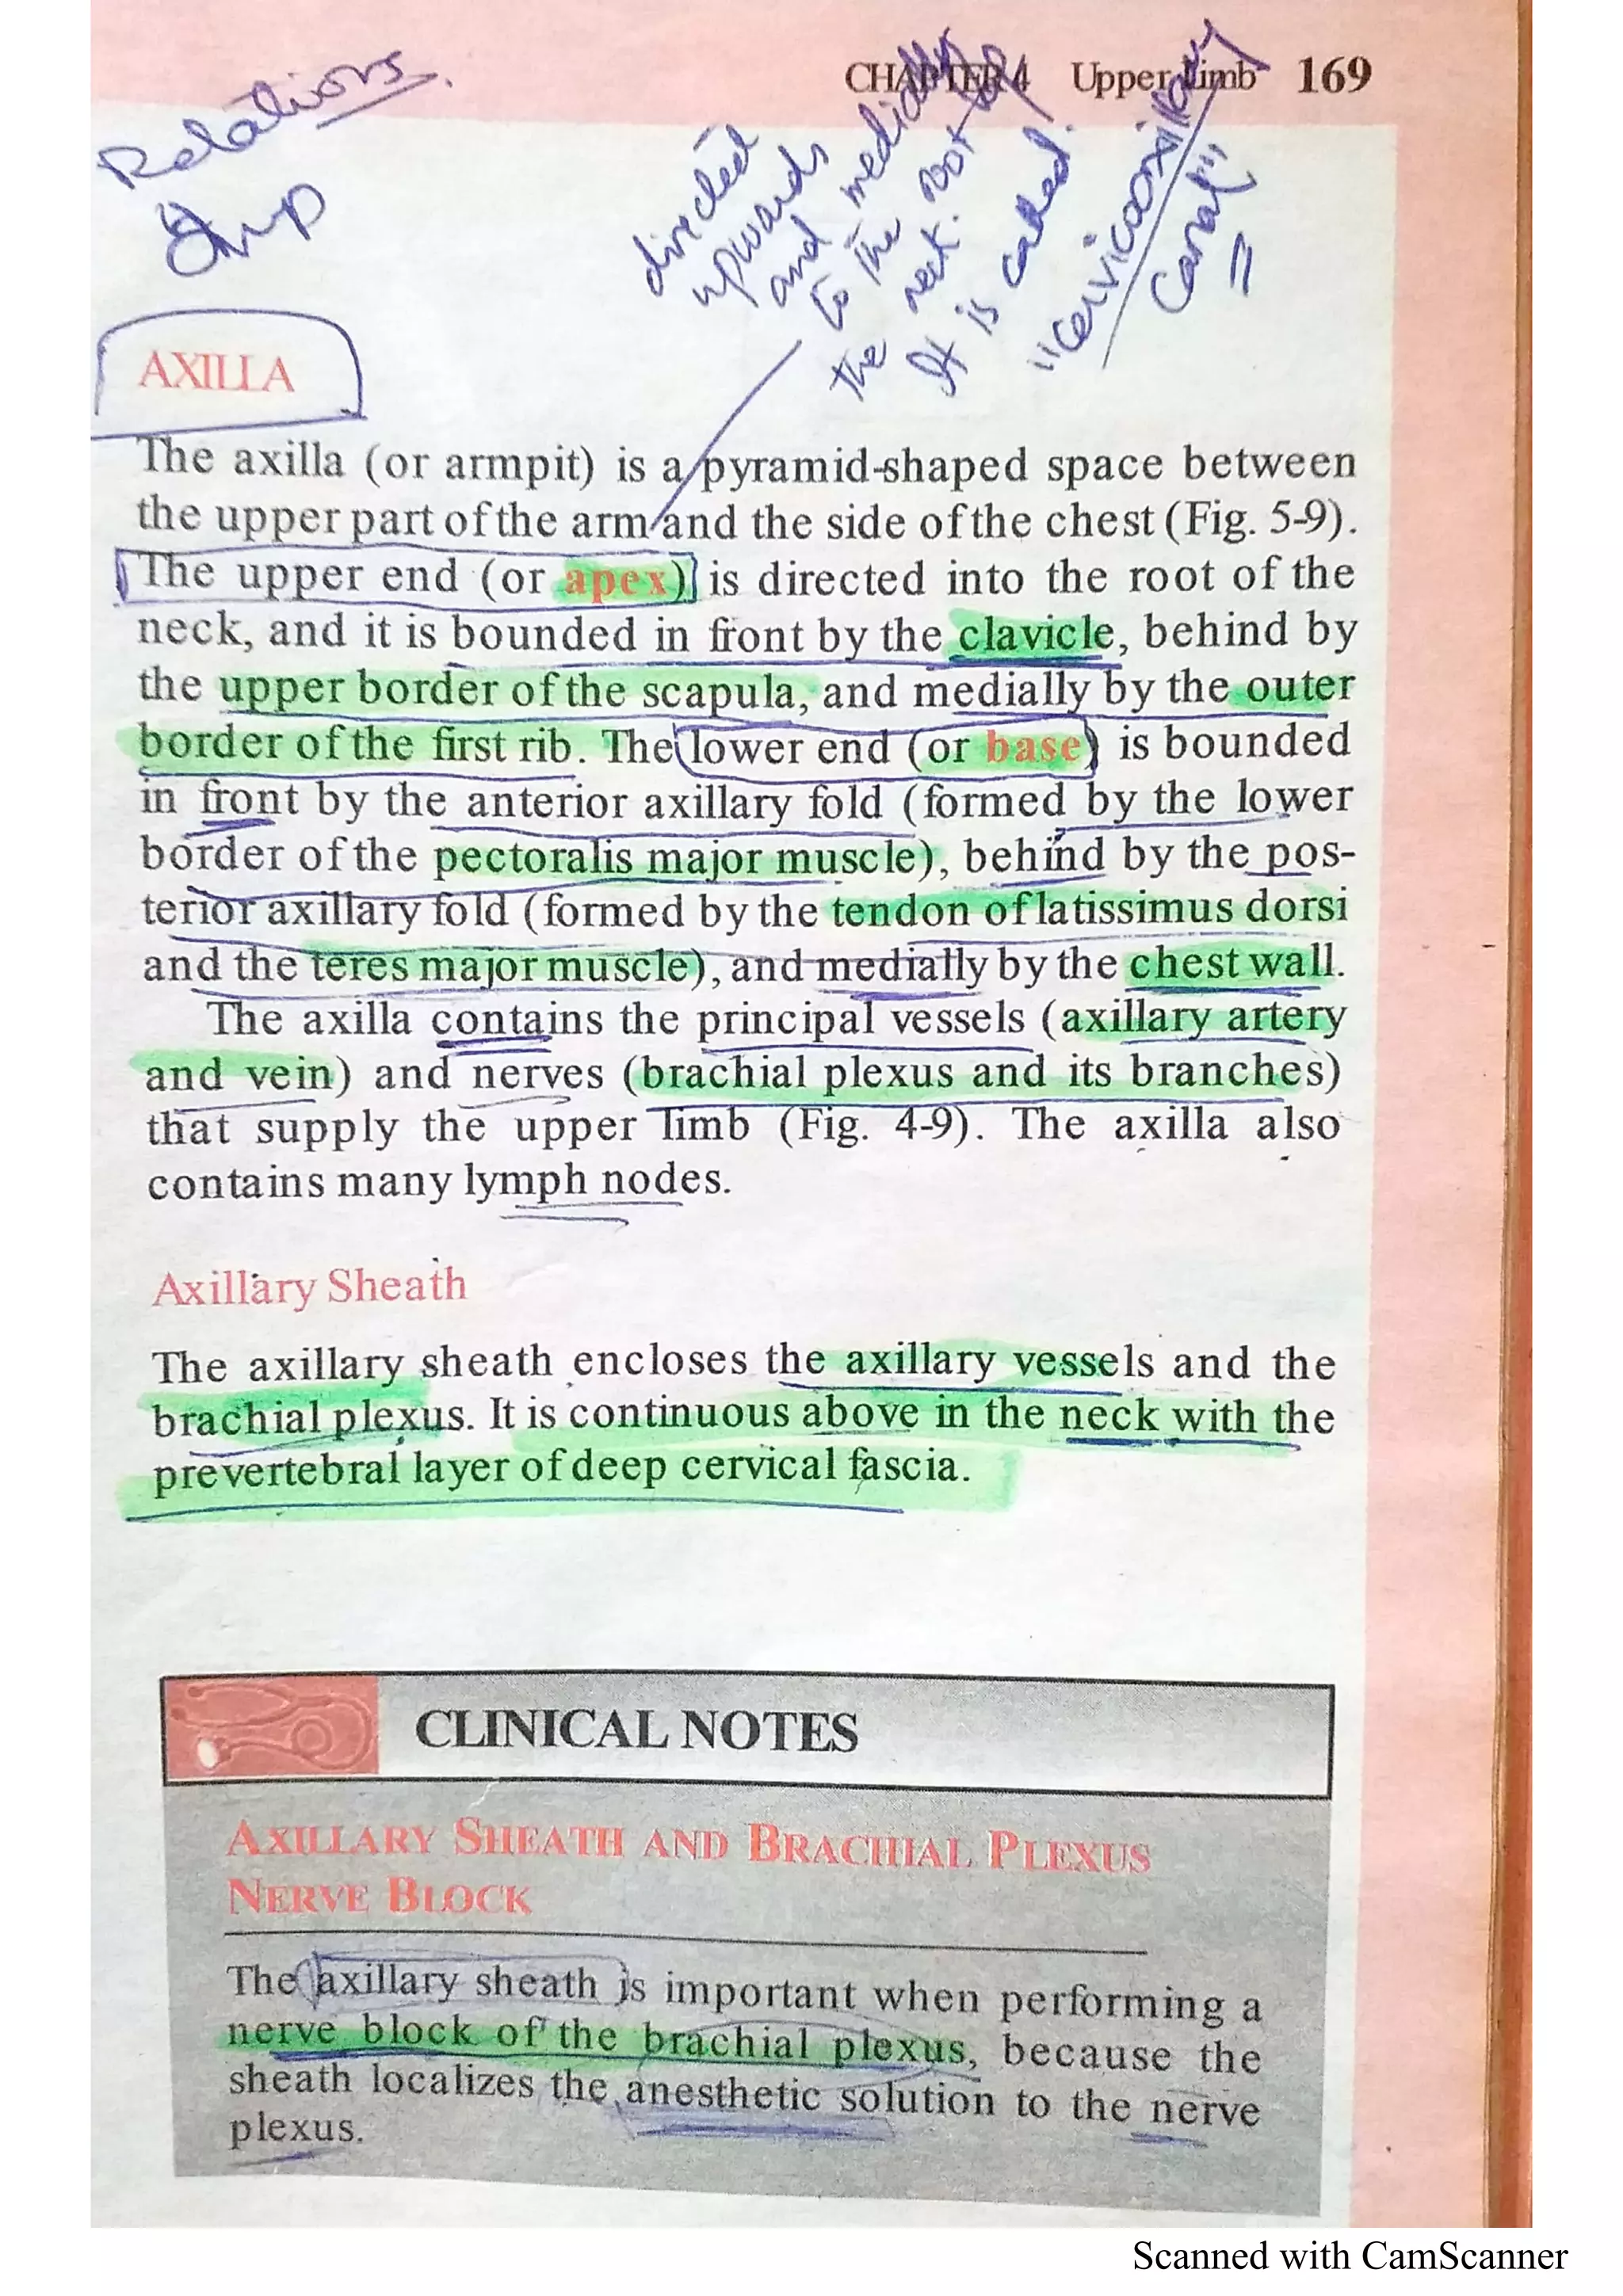 CHAPTER 4 Upper Limb 169
Relations
imp
directed
upwards
and medially
to the root
the neck.
It is called
"cervicoaxillary
canal"
AXILLA
The axilla (or armpit) is a pyramid-shaped space between
the upper part of the arm and the side of the chest (Fig. 5-9).
The upper end (or apex) is directed into the root of the
neck, and it is bounded in front by the clavicle, behind by
the upper border of the scapula, and medially by the outer
border of the first rib. The lower end (or base) is bounded
in front by the anterior axillary fold (formed by the lower
border of the pectoralis major muscle), behind by the pos-
terior axillary fold (formed by the tendon of latissimus dorsi
and the teres major muscle), and medially by the chest wall.
The axilla contains the principal vessels (axillary artery
and vein) and nerves (brachial plexus and its branches)
that supply the upper limb (Fig. 4-9). The axilla also
contains many lymph nodes.
Axillary Sheath
The axillary sheath encloses the axillary vessels and the
brachial plexus. It is continuous above in the neck with the
prevertebral layer of deep cervical fascia.
CLINICAL NOTES
AXILLARY SHEATH AND BRACHIAL PLEXUS
NERVE BLOCK
The axillary sheath is important when performing a
nerve block of the brachial plexus, because the
sheath localizes the anesthetic solution to the nerve
plexus.
Scanned with CamScanner